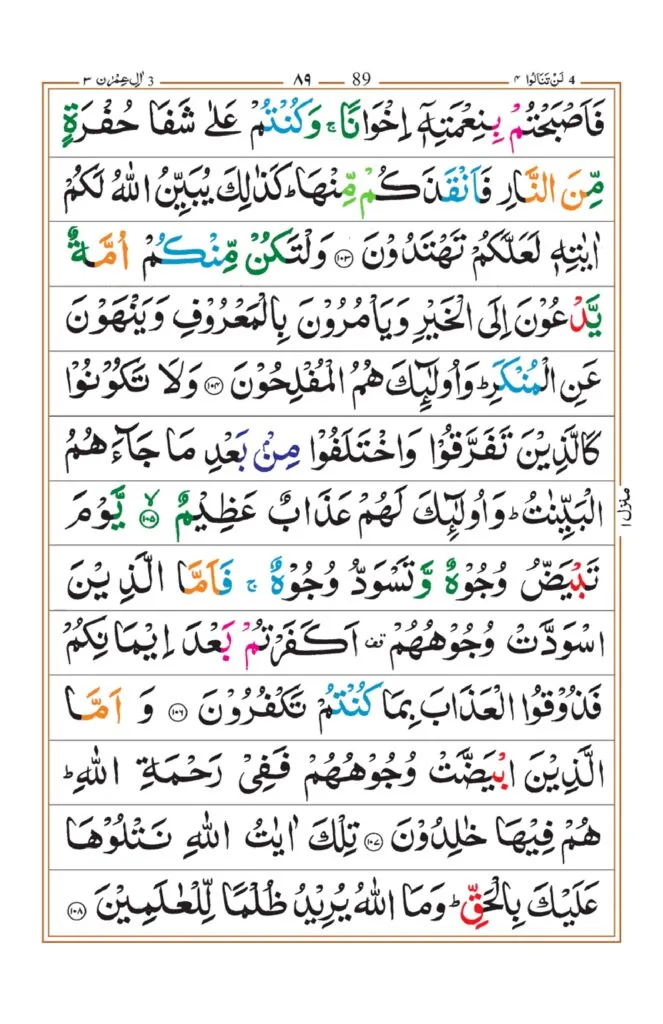 4 لَنْ تَنَالُوا ٤ 89 ٨٩ 3 اٰلِ عِمْرٰن ٣
فَاَصْبَحْتُمْ بِنِعْمَتِهٖۤ اِخْوَانًا ۚ وَكُنْتُمْ عَلٰى شَفَا حُفْرَةٍ
مِّنَ النَّارِ فَاَنْقَذَكُمْ مِّنْهَا ؕ كَذٰلِكَ يُبَيِّنُ اللّٰهُ لَكُمْ
اٰيٰتِهٖ لَعَلَّكُمْ تَهْتَدُوْنَ ﴿۱۰۳﴾ وَلْتَكُنْ مِّنْكُمْ اُمَّةٌ
يَّدْعُوْنَ اِلَى الْخَيْرِ وَيَاْمُرُوْنَ بِالْمَعْرُوْفِ وَيَنْهَوْنَ
عَنِ الْمُنْكَرِ ؕ وَاُولٰٓئِكَ هُمُ الْمُفْلِحُوْنَ ﴿۱۰۴﴾ وَلَا تَكُوْنُوْا
كَالَّذِيْنَ تَفَرَّقُوْا وَاخْتَلَفُوْا مِنْۢ بَعْدِ مَا جَآءَهُمُ
الْبَيِّنٰتُ ؕ وَاُولٰٓئِكَ لَهُمْ عَذَابٌ عَظِيْمٌ ﴿۱۰۵﴾ ۙ يَّوْمَ
تَبْيَضُّ وُجُوْهٌ وَّتَسْوَدُّ وُجُوْهٌ ۚ فَاَمَّا الَّذِيْنَ
اسْوَدَّتْ وُجُوْهُهُمْ قف اَكَفَرْتُمْ بَعْدَ اِيْمَانِكُمْ
فَذُوْقُوا الْعَذَابَ بِمَا كُنْتُمْ تَكْفُرُوْنَ ﴿۱۰۶﴾ وَ اَمَّا
الَّذِيْنَ ابْيَضَّتْ وُجُوْهُهُمْ فَفِيْ رَحْمَةِ اللّٰهِ ؕ
هُمْ فِيْهَا خٰلِدُوْنَ ﴿۱۰۷﴾ تِلْكَ اٰيٰتُ اللّٰهِ نَتْلُوْهَا
عَلَيْكَ بِالْحَقِّ ؕ وَمَا اللّٰهُ يُرِيْدُ ظُلْمًا لِّلْعٰلَمِيْنَ ﴿۱۰۸﴾
منزل ۱